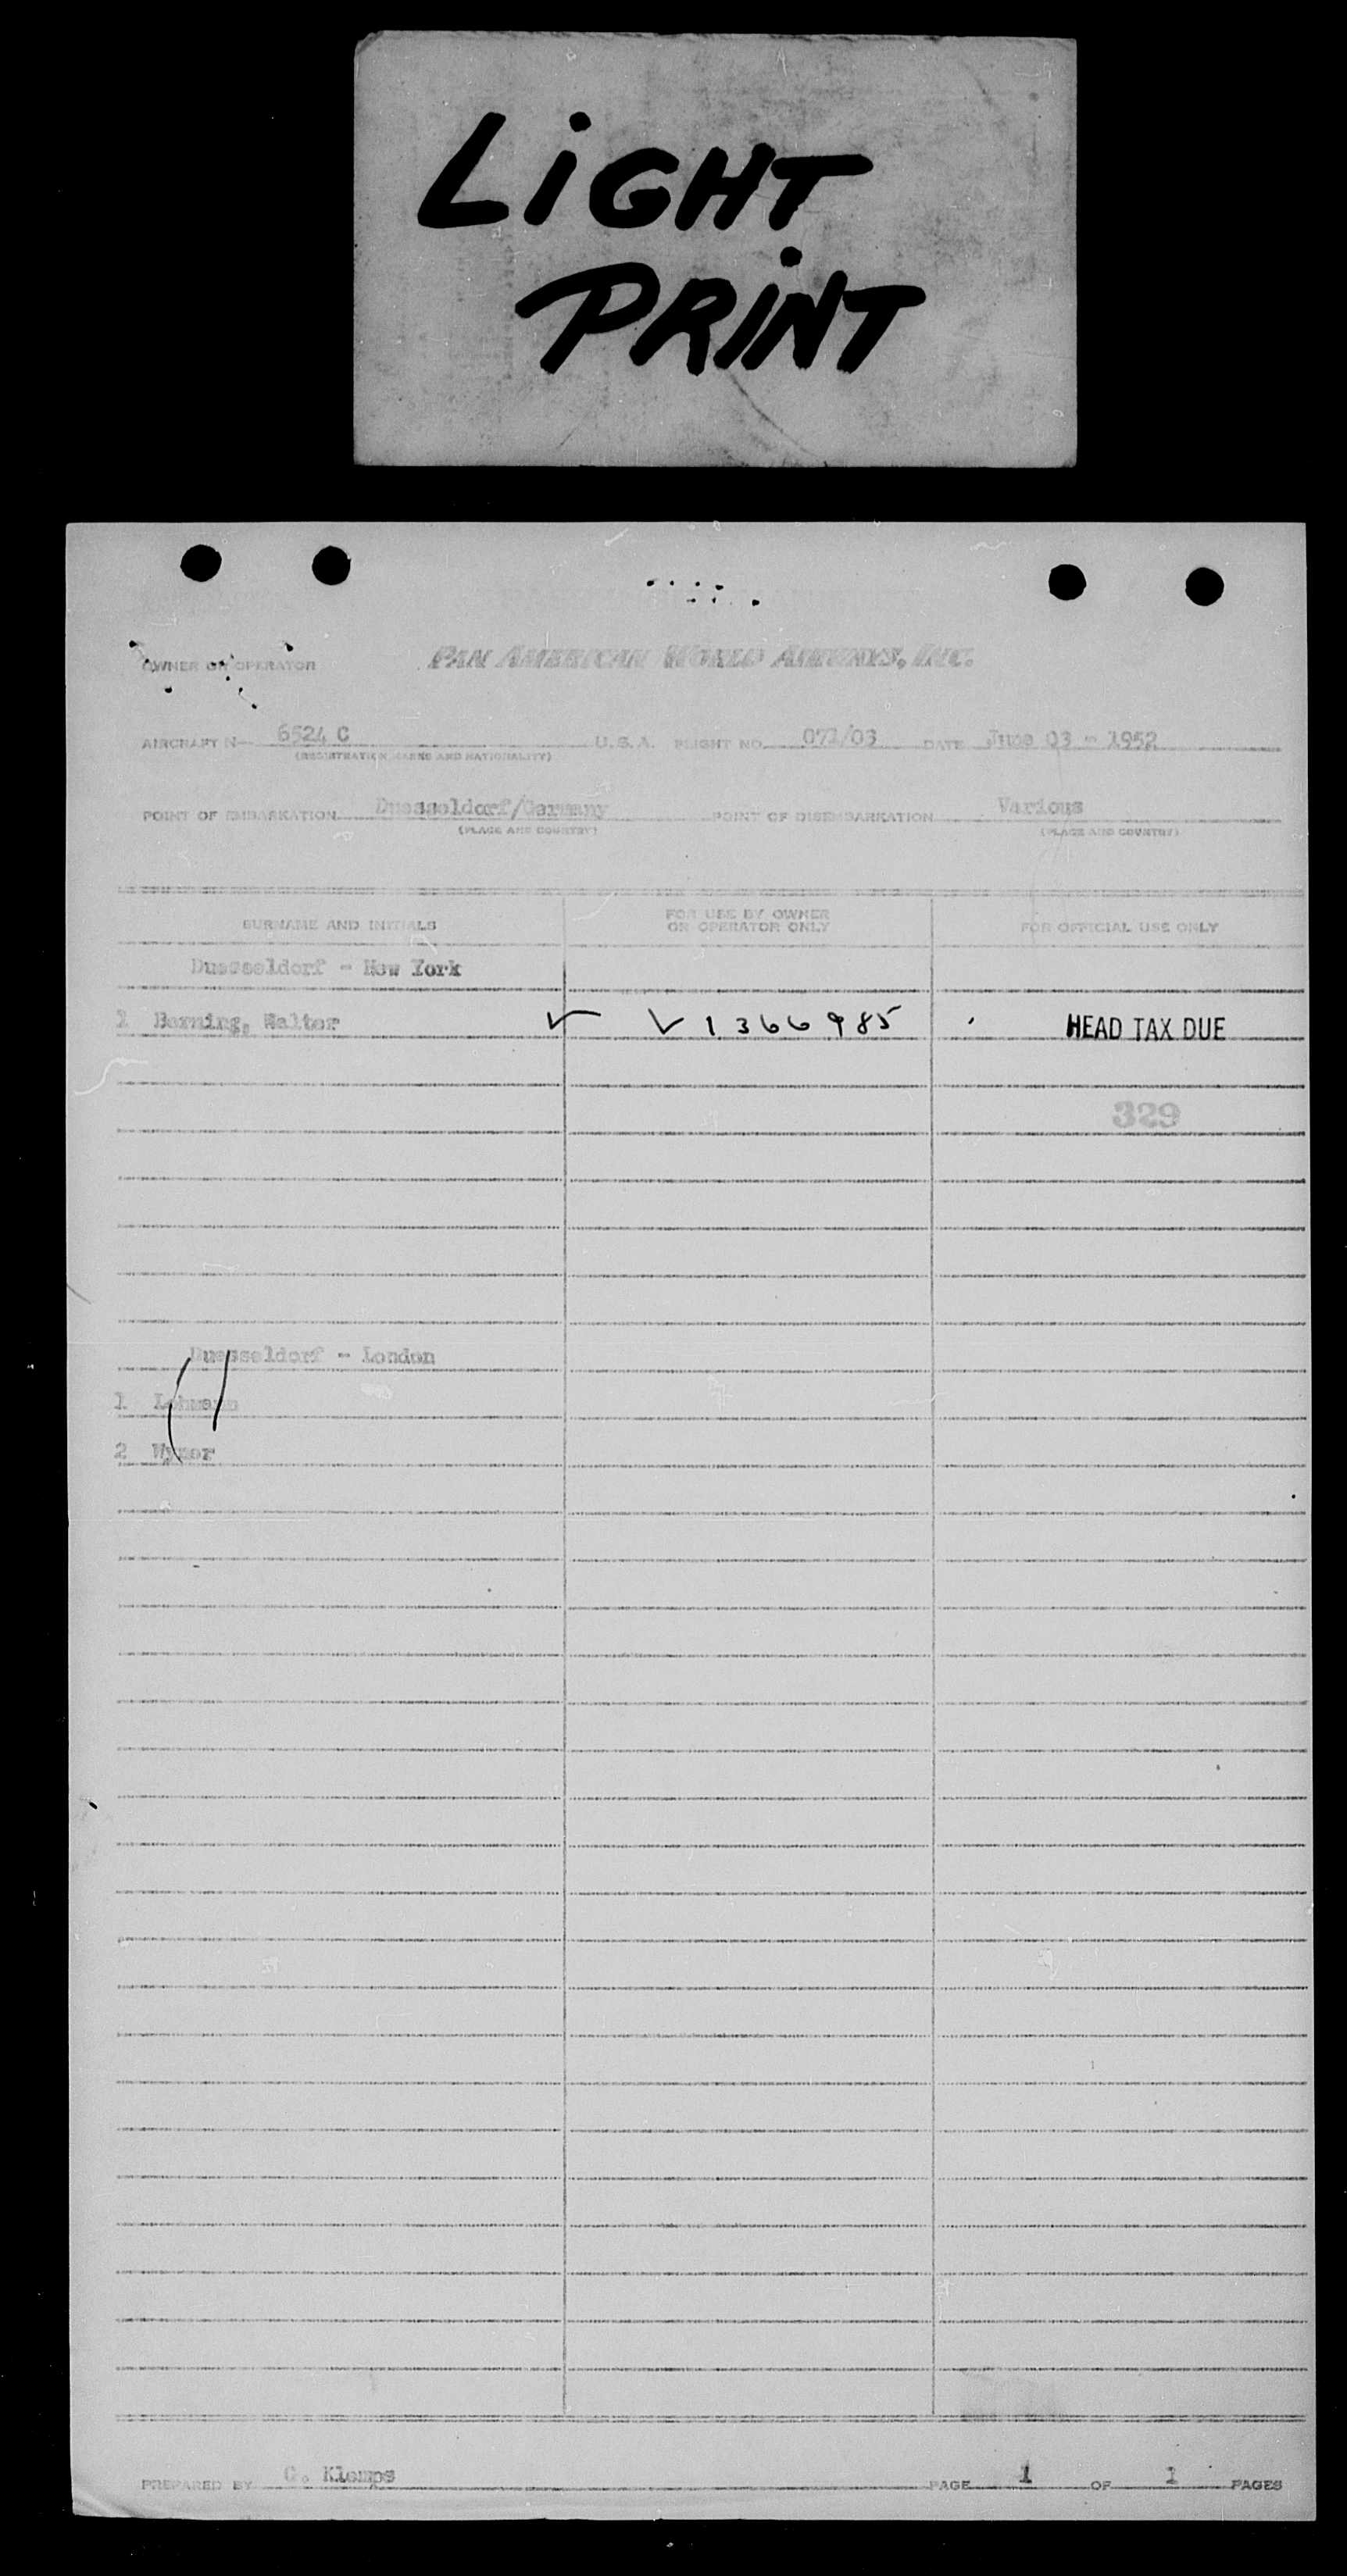 LiGHT
PRiNT
OWNER OR OPERATOR PAN AMERICAN WORLD AIRWAYS, INC.
AIRCRAFT N- 6524 C U.S.A. FLIGHT NO. 071/03 DATE June 03 - 1952
(REGISTRATION MARKS AND NATIONALITY)
POINT OF EMBARKATION Duesseldorf/Germany POINT OF DISEMBARKATION Various
(PLACE AND COUNTRY) (PLACE AND COUNTRY)
SURNAME AND INITIALS FOR USE BY OWNER OR OPERATOR ONLY FOR OFFICIAL USE ONLY
Duesseldorf - New York
1 Berning, Walter ✓ ✓ 1366985 HEAD TAX DUE
329
Duesseldorf - London
1 Lehmann
2 Wymer
PREPARED BY G. Klemps PAGE 1 OF 1 PAGES